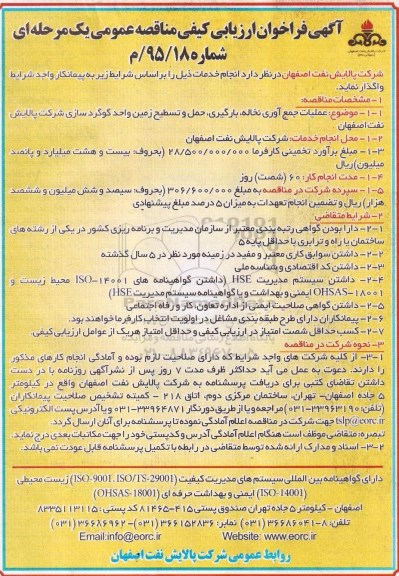 آگهی فراخوان ارزیابی کیفی مناقصه عمومی یک مرحله ای
شماره ۹۵/۱۸/م
شرکت پالایش نفت اصفهان در نظر دارد انجام خدمات ذیل را بر اساس شرایط زیر به پیمانکار واجد شرایط
واگذار نماید.
۱- مشخصات مناقصه:
۱-۱- موضوع: عملیات جمع آوری نخاله، بارگیری، حمل و تسطیح زمین واحد گوگرد سازی شرکت پالایش
نفت اصفهان
۱-۲- محل انجام خدمات: شرکت پالایش نفت اصفهان
۱-۳- مبلغ برآورد تخمینی کارفرما ۲۸/۵۰۰/۰۰۰/۰۰۰ (بحروف: بیست و هشت میلیارد و پانصد
میلیون) ریال
۱-۴- مدت انجام کار: ۶۰ (شصت) روز
۱-۵- سپرده شرکت در مناقصه به مبلغ ۳۰۶/۶۰۰/۰۰۰ (بحروف: سیصد و شش میلیون و ششصد
هزار) ریال و تضمین انجام تعهدات به میزان ۵ درصد مبلغ پیشنهادی
۲- شرایط متقاضی:
۲-۱- دارا بودن گواهی رتبه بندی معتبر از سازمان مدیریت و برنامه ریزی کشور در یکی از رشته های
ساختمان یا راه و ترابری با حداقل پایه ۵
۲-۲- داشتن سوابق کاری معتبر و مفید در زمینه مورد نظر در ۵ سال گذشته
۲-۳- داشتن کد اقتصادی و شناسه ملی
۲-۴- داشتن سیستم مدیریت HSE (داشتن گواهینامه های ISO-۱۴۰۰۱ محیط زیست و
OHSAS-۱۸۰۰۱ ایمنی و بهداشت و یا گواهینامه سیستم مدیریت HSE)
۲-۵- داشتن گواهی صلاحیت ایمنی از اداره تعاون، کار و رفاه اجتماعی
۲-۶- پیمانکاران دارای طرح طبقه بندی مشاغل در اولویت انتخاب کارفرما خواهند بود.
۲-۷- کسب حداقل شصت امتیاز در ارزیابی کیفی و حداقل امتیاز هر یک از عوامل ارزیابی کیفی.
۳- نحوه شرکت در مناقصه
۳-۱- از کلیه شرکت های واجد شرایط که دارای صلاحیت لازم بوده و آمادگی انجام کارهای مذکور
را دارند، دعوت به عمل می آید حداکثر ظرف مدت ۷ روز پس از نشر آگهی روزنامه با در دست
داشتن تقاضای کتبی برای دریافت پرسشنامه به شرکت پالایش نفت اصفهان واقع در کیلومتر
۵ جاده اصفهان- تهران، ساختمان مرکزی دوم، اتاق ۲۱۸ - کمیته تشخیص صلاحیت پیمانکاران
(تلفن: ۳۳۹۶۳۱۹۰-۰۳۱) مراجعه و یا از طریق دورنگار ۳۳۹۶۴۸۷۱-۰۳۱ و یا آدرس پست الکترونیکی
tslp@eorc.ir جهت شرکت در مناقصه اعلام آمادگی نموده تا پرسشنامه برای آنان ارسال گردد.
تبصره: متقاضی موظف است هنگام اعلام آمادگی آدرس و کدپستی خود را جهت مکاتبات بعدی درج نماید.
۳-۲- اسناد و مدارک ارائه شده توسط متقاضی در رابطه با تکمیل پرسشنامه قابل عودت نمی باشد.
دارای گواهینامه بین المللی سیستم های مدیریت کیفیت (ISO-9001، ISO/TS-29001) زیست محیطی
(ISO-14001) ایمنی و بهداشت حرفه ای (OHSAS-18001)
اصفهان - کیلومتر ۵ جاده تهران صندوق پستی ۴۱۵-۸۱۴۶۵ کد پستی: ۸۳۳۵۱۱۳۱۱۵
تلفن: ۸-۳۶۶۸۶۰۴۱ (۰۳۱) نمابر: ۳۶۶۱۵۲۸۳۶ (۰۳۱)- ۳۶۶۸۶۹۶۲ (۰۳۱)
Website: www.eorc.ir Email:info@eorc.ir
روابط عمومی شرکت پالایش نفت اصفهان